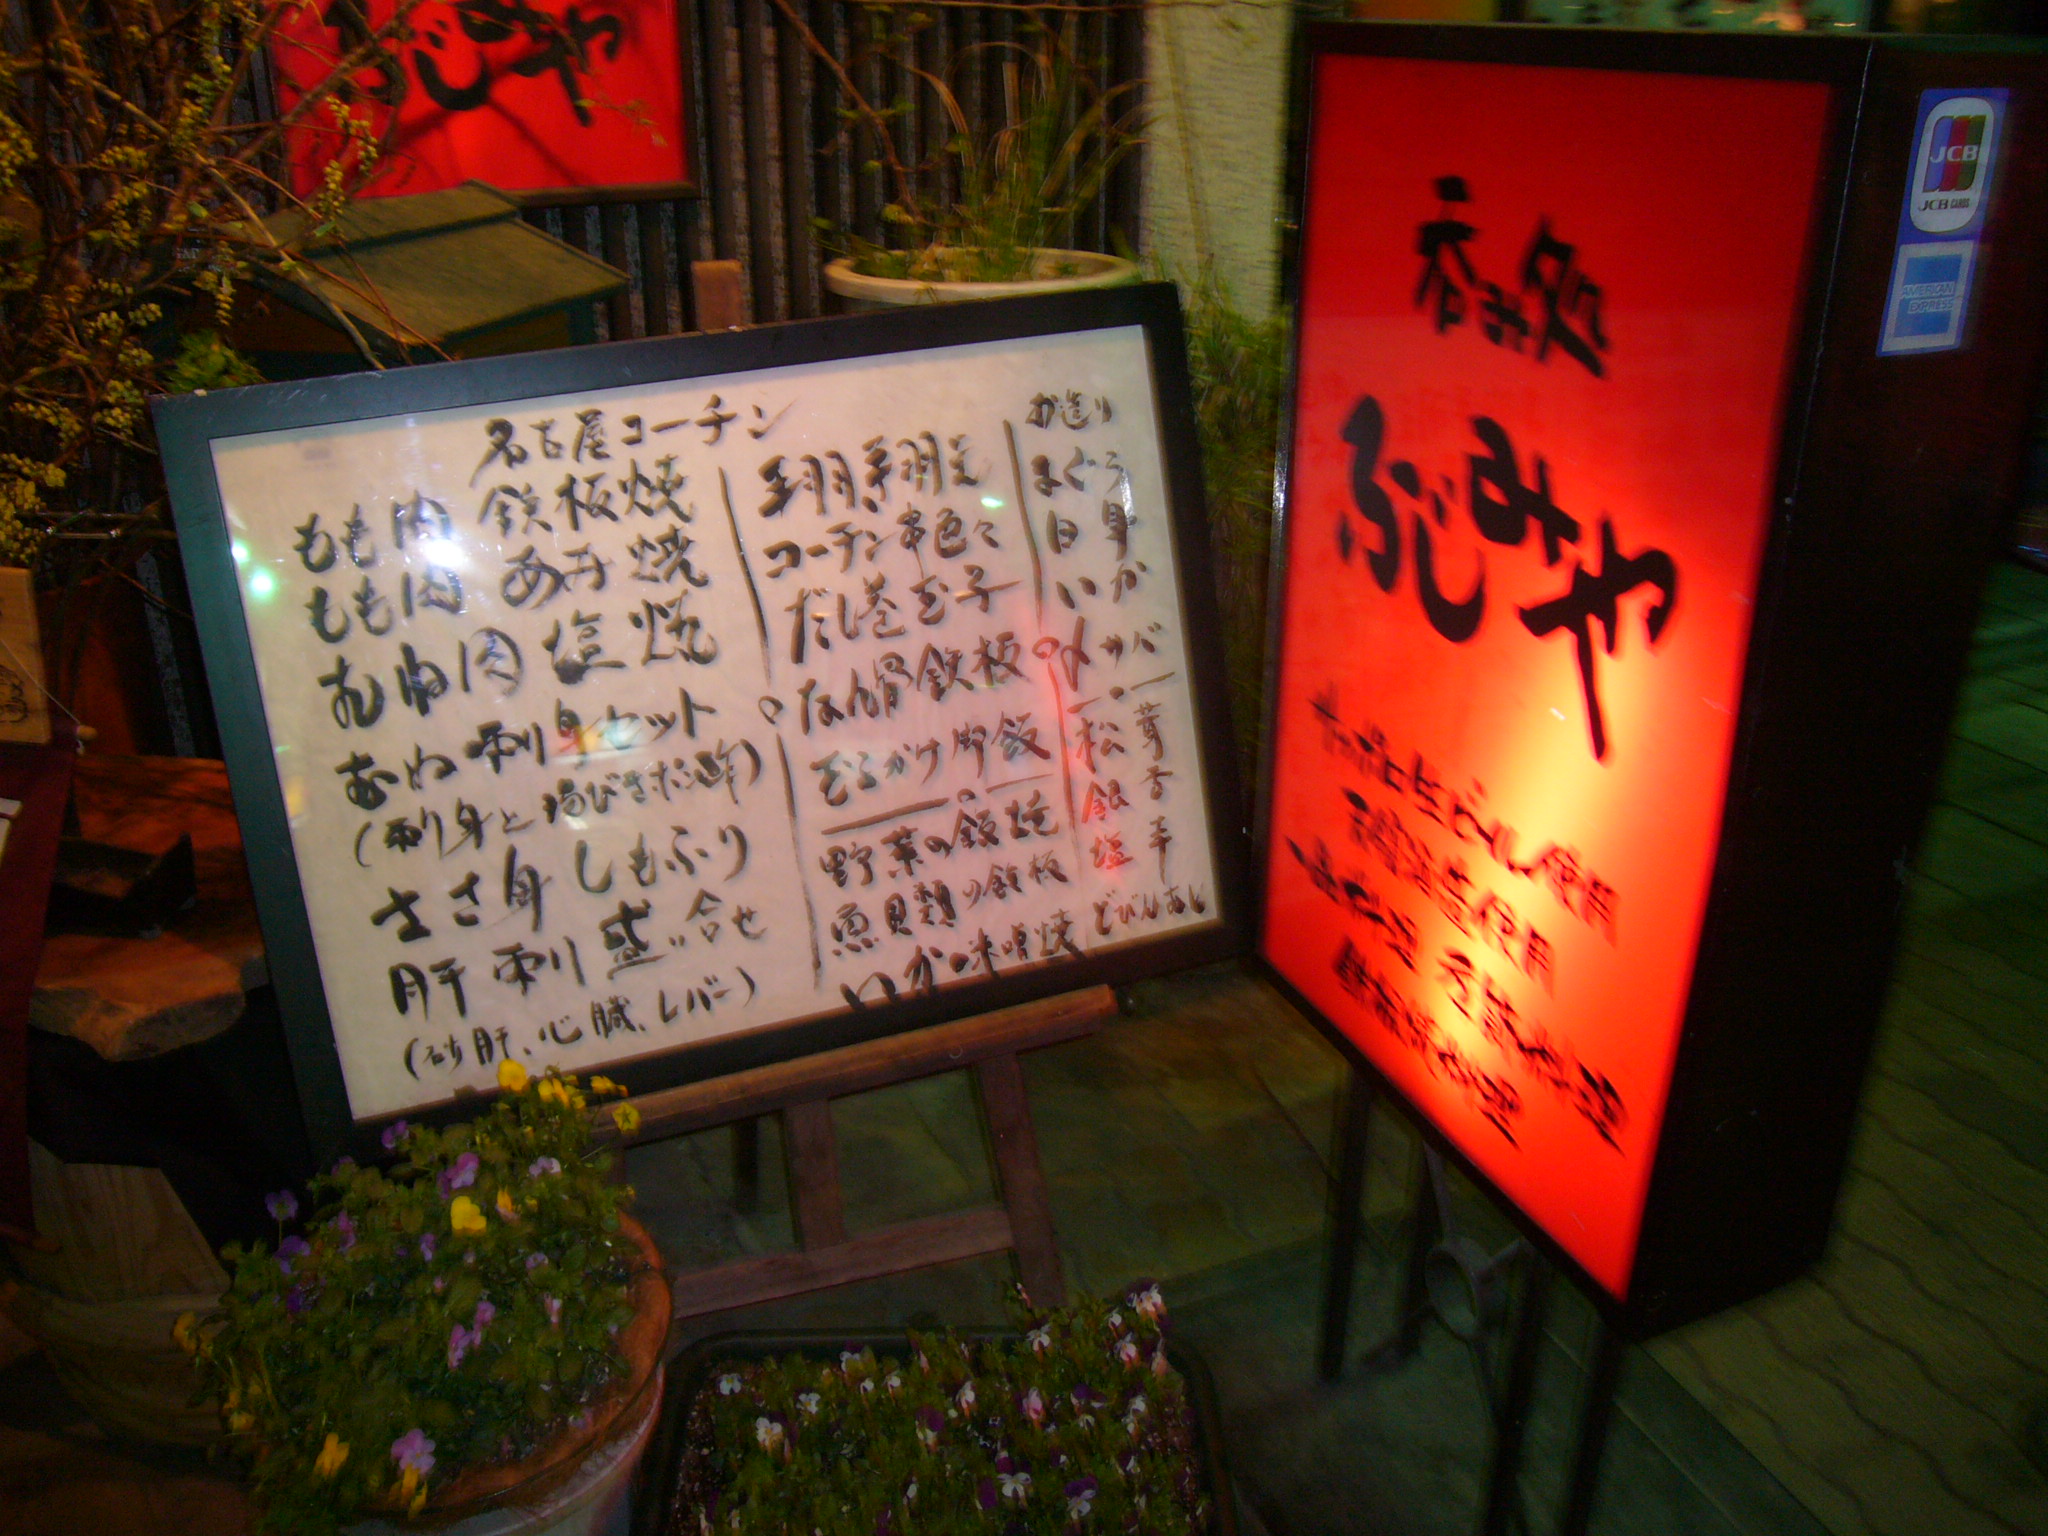 ふじみや
名古屋コーチン
もも肉 鉄板焼
もも肉 あみ焼
むね肉 塩焼
むね刺身セット
ささ身 しもふり
肝刺 盛り合せ
(砂肝、心臓、レバー)
手羽、手羽先
コーチン串色々
だし巻玉子
なん骨鉄板
玉子かけ御飯
野菜の鉄板焼
魚貝類の鉄板
いか味噌焼
お造り
まぐろ
白身
いか
〆サバ
松茸
銀杏
塩辛
どびんむし
呑み処
ふじみや
サッポロ生ビール使用
JCB
JCB CARDS
AMERICAN
EXPRESS